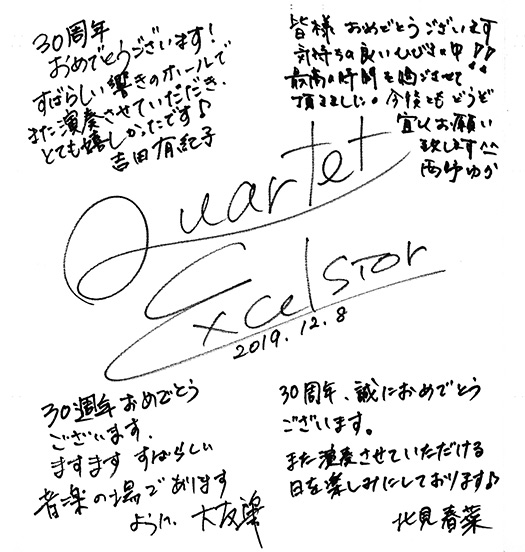 30周年
おめでとうございます!
すばらしい響きのホールで
また演奏させていただき、
とても嬉しかったです♪
吉田有紀子
皆様 おめでとうございます
気持ちの良いひびきの中!!
最高の時間を過ごさせて
頂きました。今後ともどうぞ
宜しくお願い
致します^^
西野ゆか
Quartet
Excelsior
2019.12.8
30週年おめでとう
ございます.
ますます すばらしい
音楽の場であります
ように、 大友肇
30周年、誠におめでとう
ございます。
また演奏させていただける
日を楽しみにしております♪
北見春菜